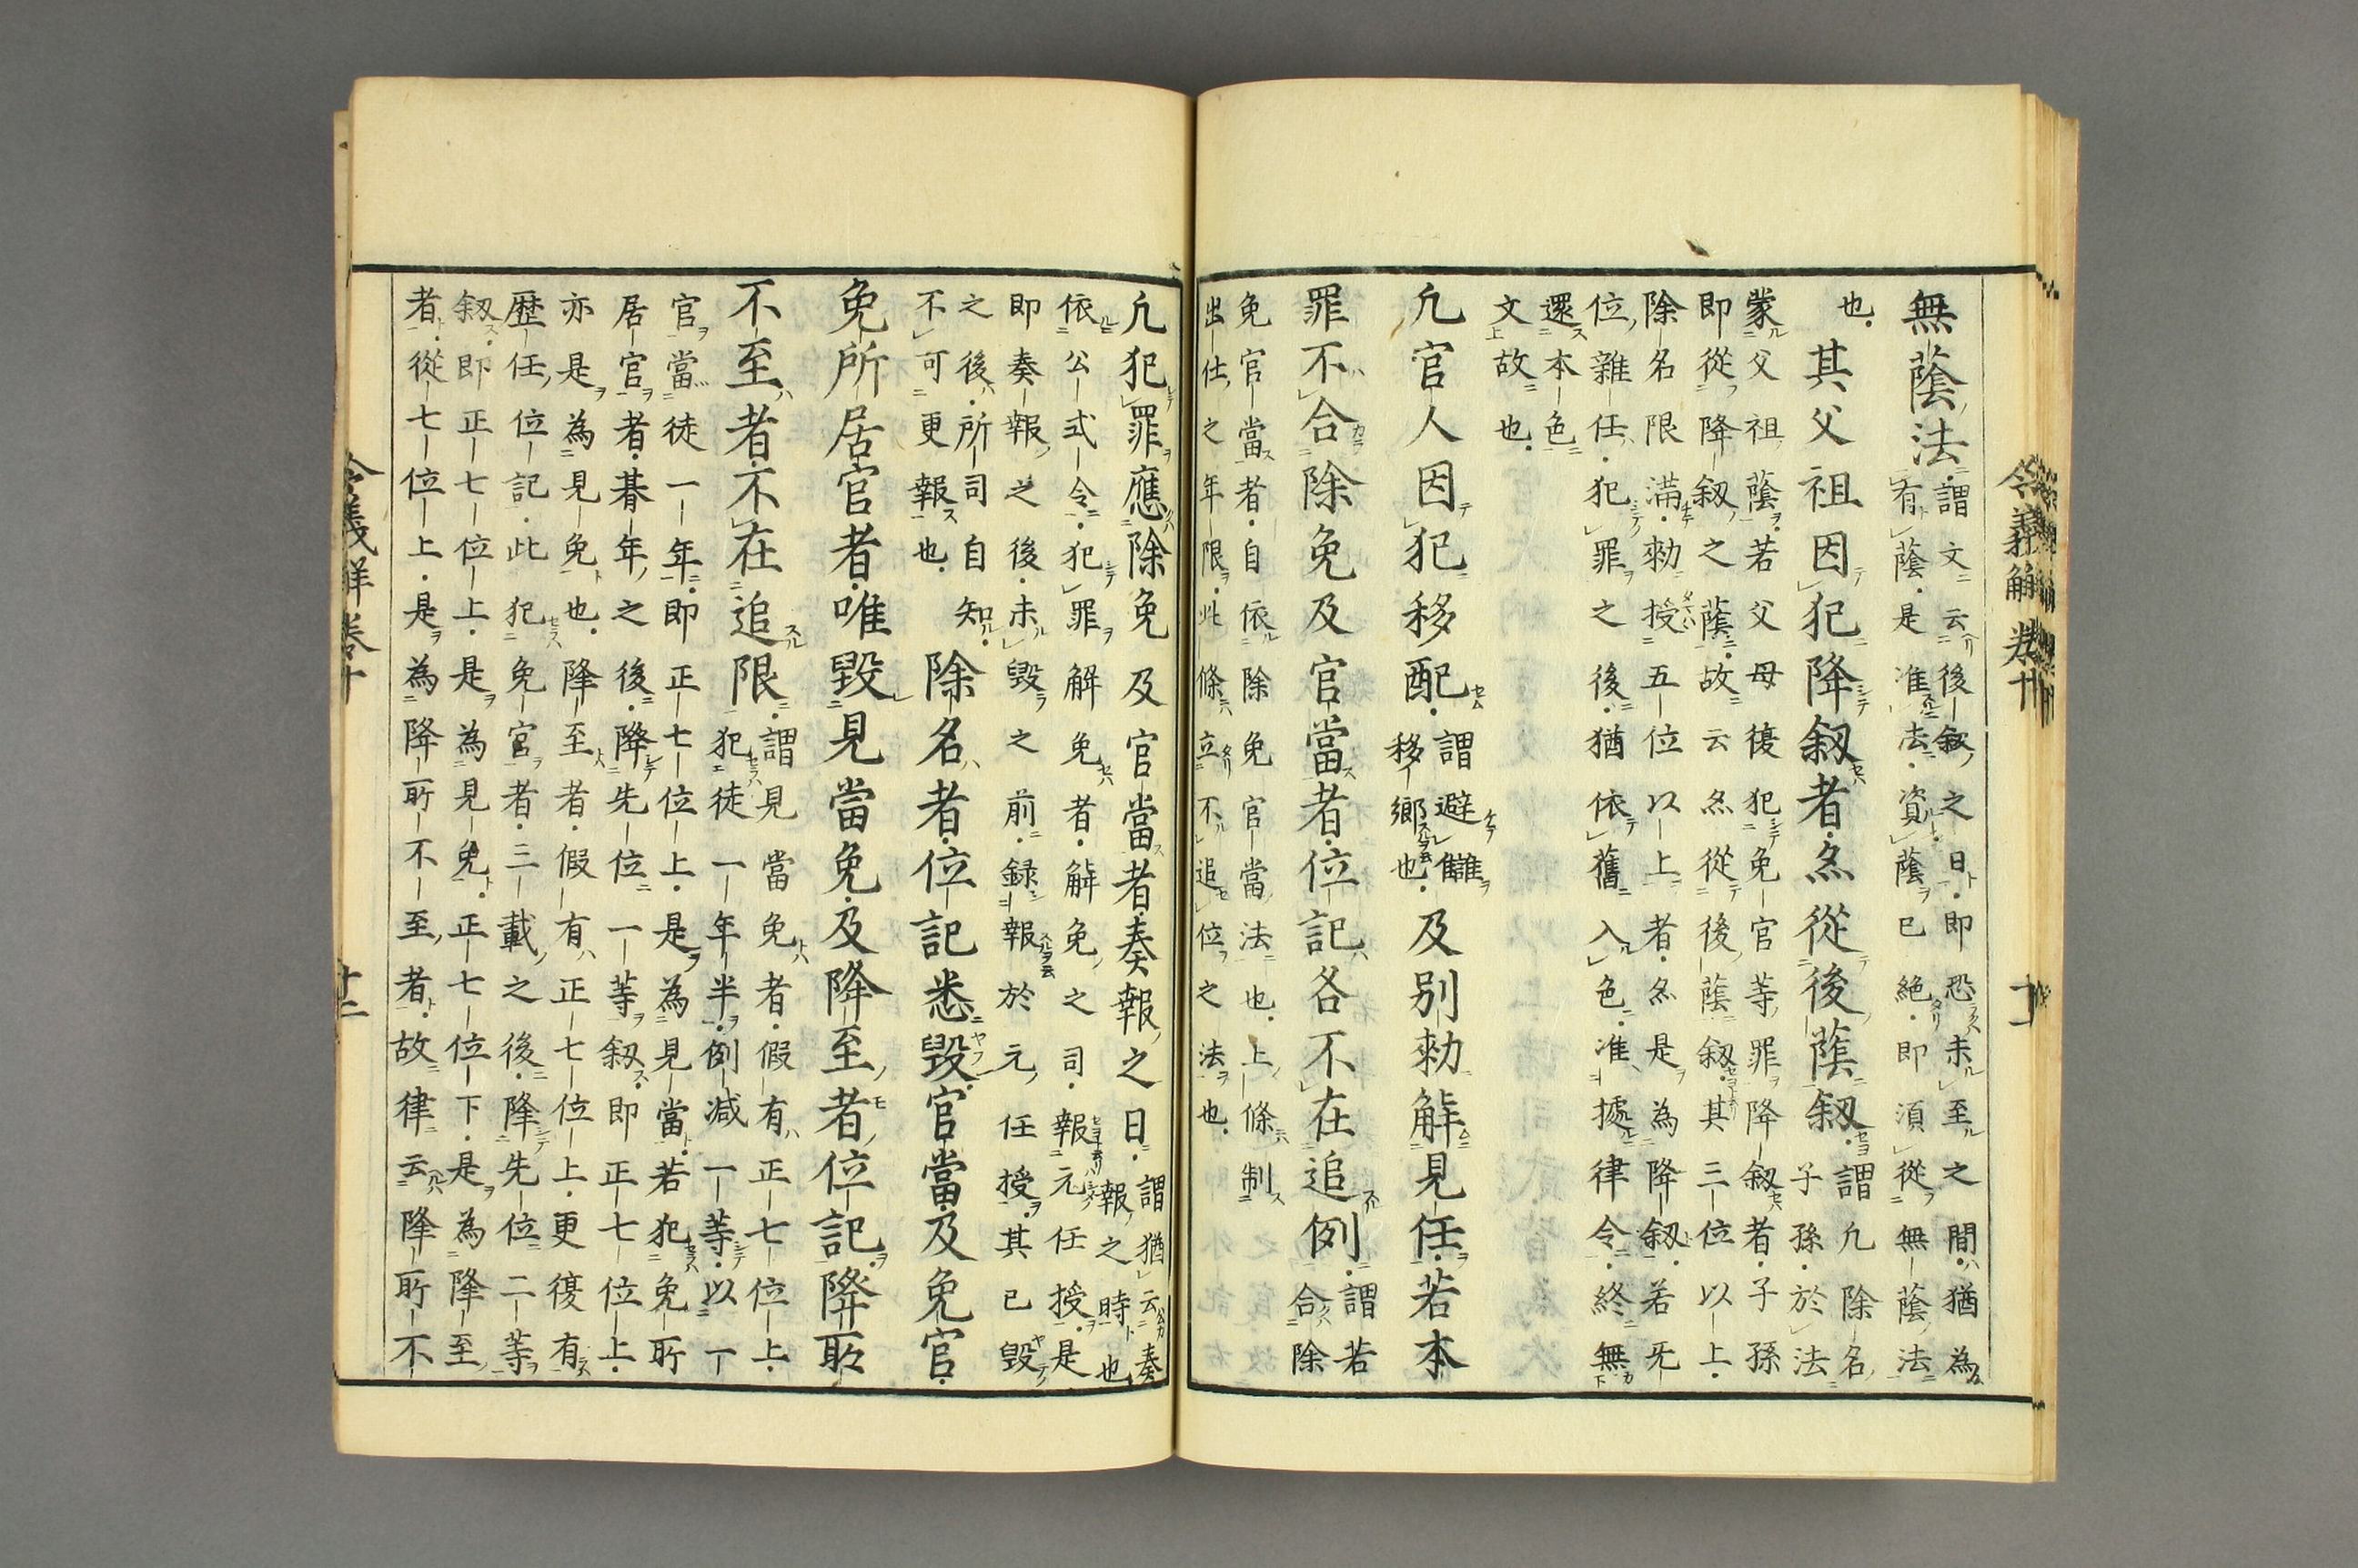 令義解 卷十 十一
無蔭法
謂文云後叙之日即恐未至之間猶為
有蔭是准法資蔭已絶即須從無蔭法
也
其父祖因犯降叙者亦從後蔭叙
謂凡除名
子孫於法
蒙父祖蔭若父母復犯免官等罪降叙者子孫
即從降叙之蔭故云亦從後蔭叙其三位以上
除名限滿勅授五位以上者亦是為降叙若旡
位雜任犯罪之後猶依舊入色准據律令終無
還本色
文故也
凡官人因犯移配
謂避讎
移郷也
及別勅解見任若本
罪不合除免及官當者位記各不在追例
謂若
合除
免官當者自依除免官當法也上條制
出仕之年限此條立不追位之法也
凡犯罪應除免及官當者奏報之日
謂猶云奏
報之時也
依公式令犯罪解免者解免之司報元任授是
即奏報之後未毀之前録報於元任授其已毀
之後所司自知
不可更報也
除名者位記悉毀官當及免官
免所居官者唯毀見當免及降至者位記降所
不至者不在追限
謂見當免者假有正七位上
犯徒一年半例减一等以一
官當徒一年即正七位上是為見當若犯免所
居官者朞年之後降先位一等叙即正七位上
亦是為見免也降至者假有正七位上更復有
歴任位記此犯免官者三載之後降先位二等
叙即正七位上是為見免正七位下是為降至
者從七位上是為降所不至者故律云降所不
令義解卷十 十二